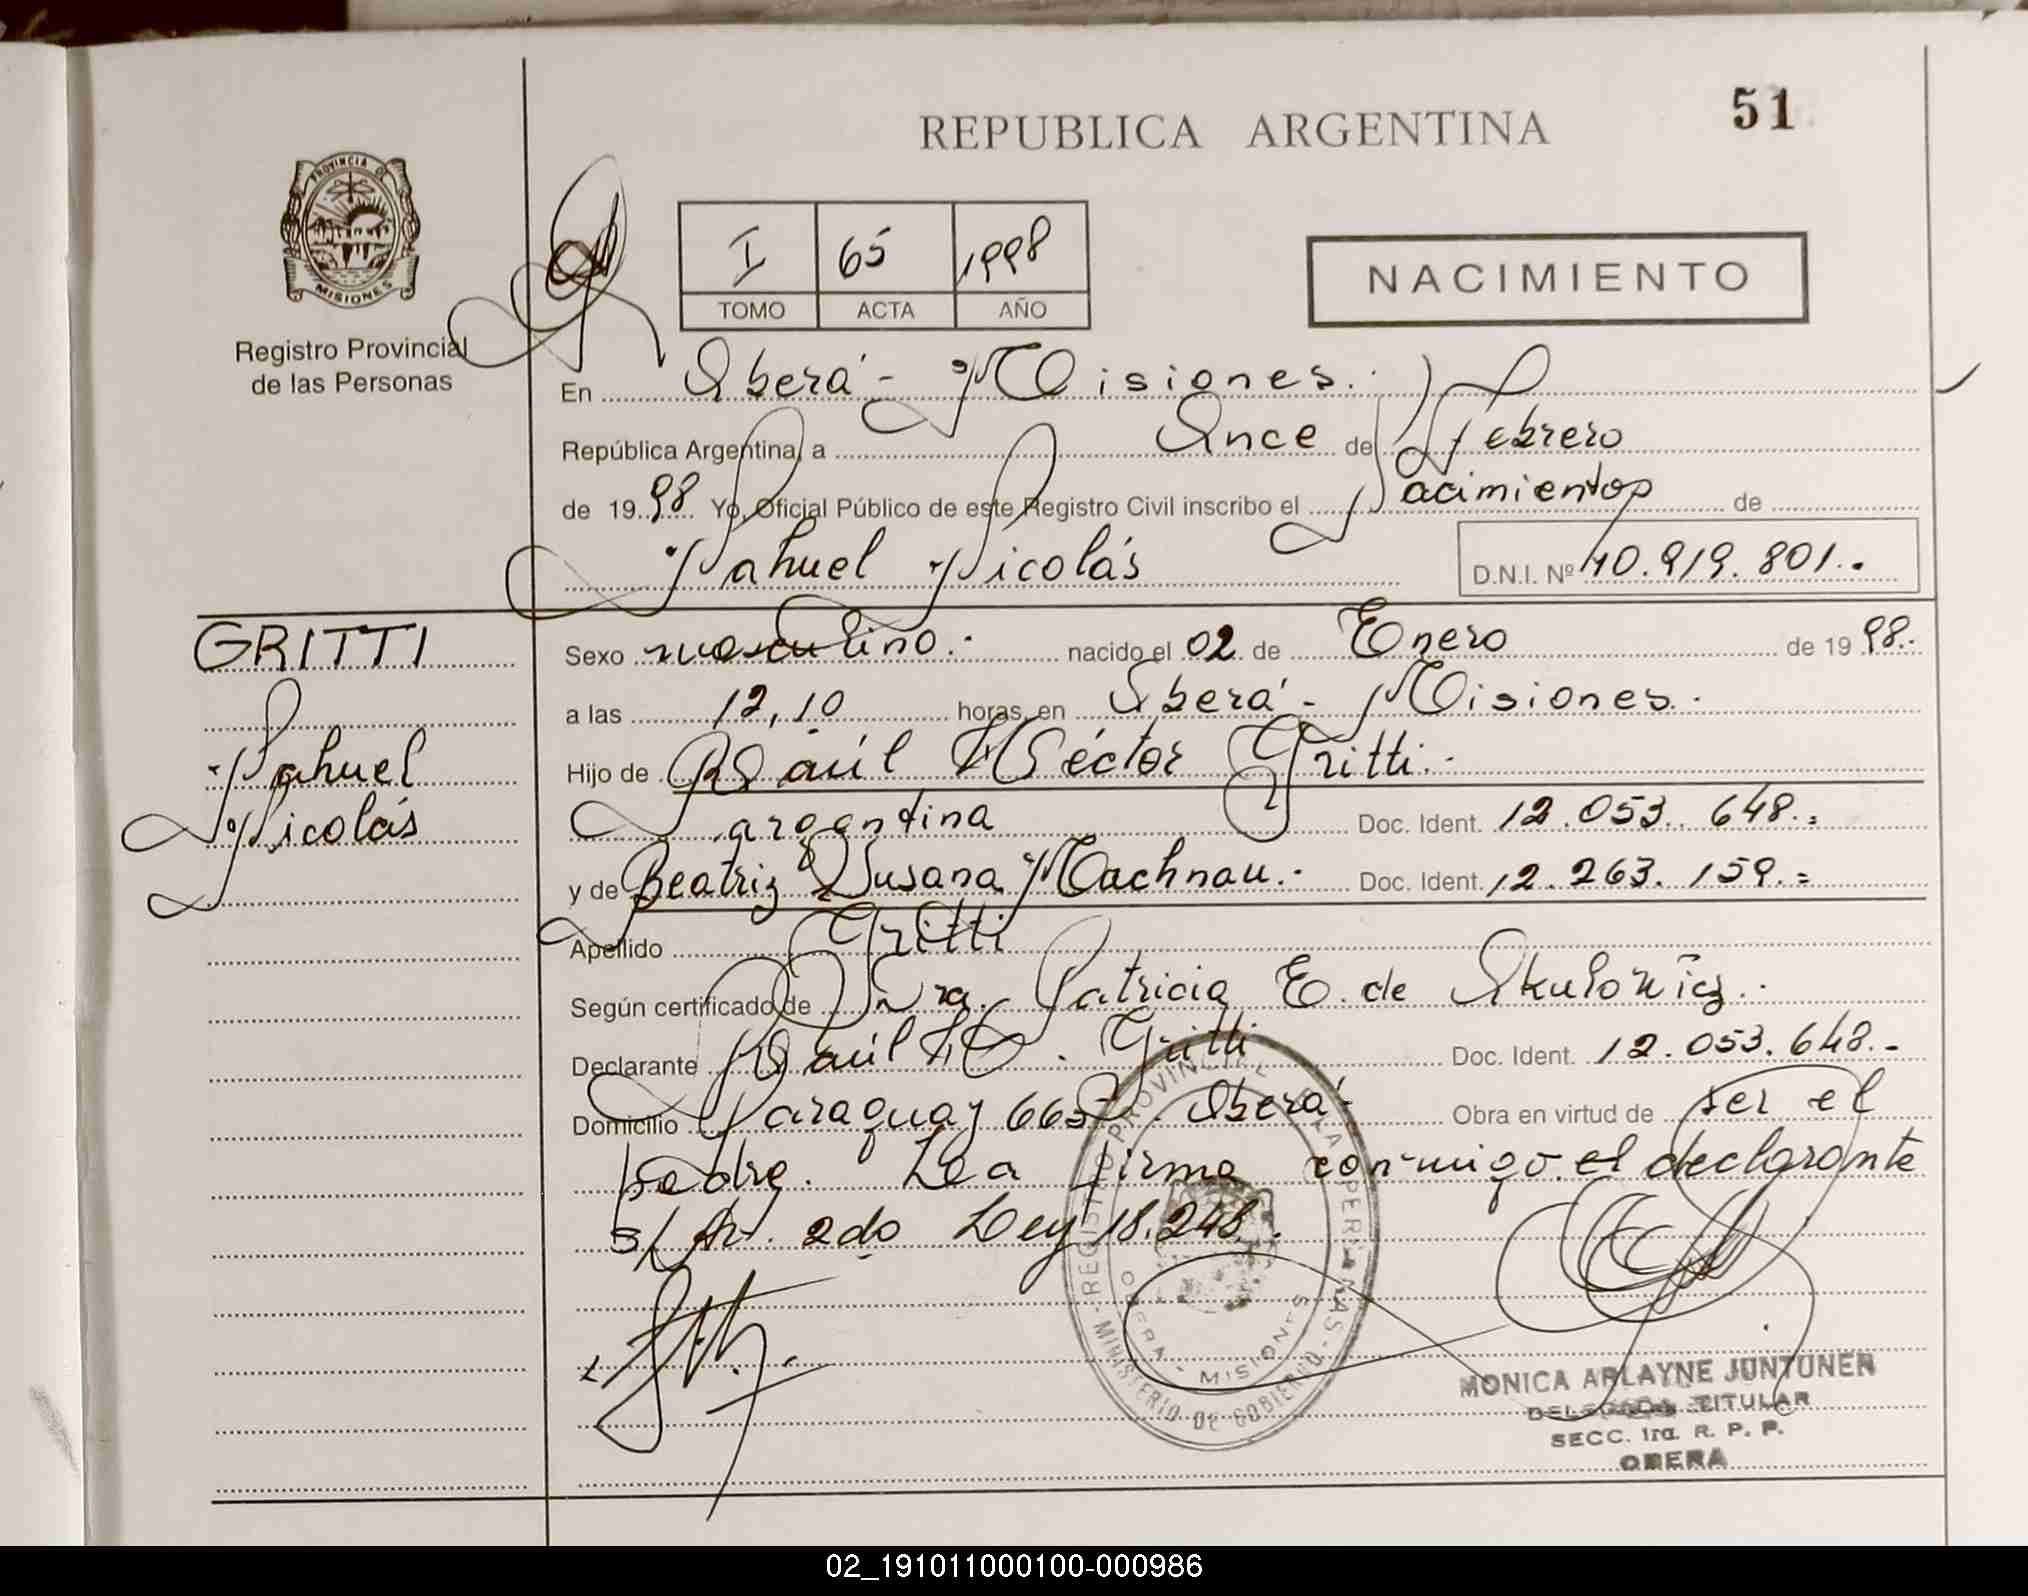 51
REPUBLICA ARGENTINA
PROVINCIA DE
MISIONES
Registro Provincial
de las Personas
I 65 1998
TOMO ACTA AÑO
NACIMIENTO
En Oberá - Misiones.
República Argentina, a Once de Febrero
de 1998 Yo, Oficial Público de este Registro Civil inscribo el Nacimiento de
Nahuel Nicolás
D.N.I. Nº 40.919.801.
GRITTI
Nahuel
Nicolás
Sexo masculino.- nacido el 02 de Enero de 1998.-
a las 12,10 horas, en Oberá - Misiones.
Hijo de Raúl Héctor Gritti.-
argentina Doc. Ident. 12.053.648.=
y de Beatriz Susana Machnau.- Doc. Ident. 12.263.159.=
Apellido Gritti
Según certificado de Dra. Patricia E. de
Declarante Raúl H. Gritti Doc. Ident. 12.053.648.-
Domicilio Paraguay 665 - Oberá- Obra en virtud de ser el
padre. Lea firma conmigo el declarante
s/Art. 2do Ley 18.248.
REGISTRO PROVINCIAL DE LAS PERSONAS
OBERA - MISIONES
MINISTERIO DE GOBIERNO
MONICA ARLAYNE JUNTUNEN
DELEGADA TITULAR
SECC. 1ra. R. P. P.
OBERA
02_191011000100-000986